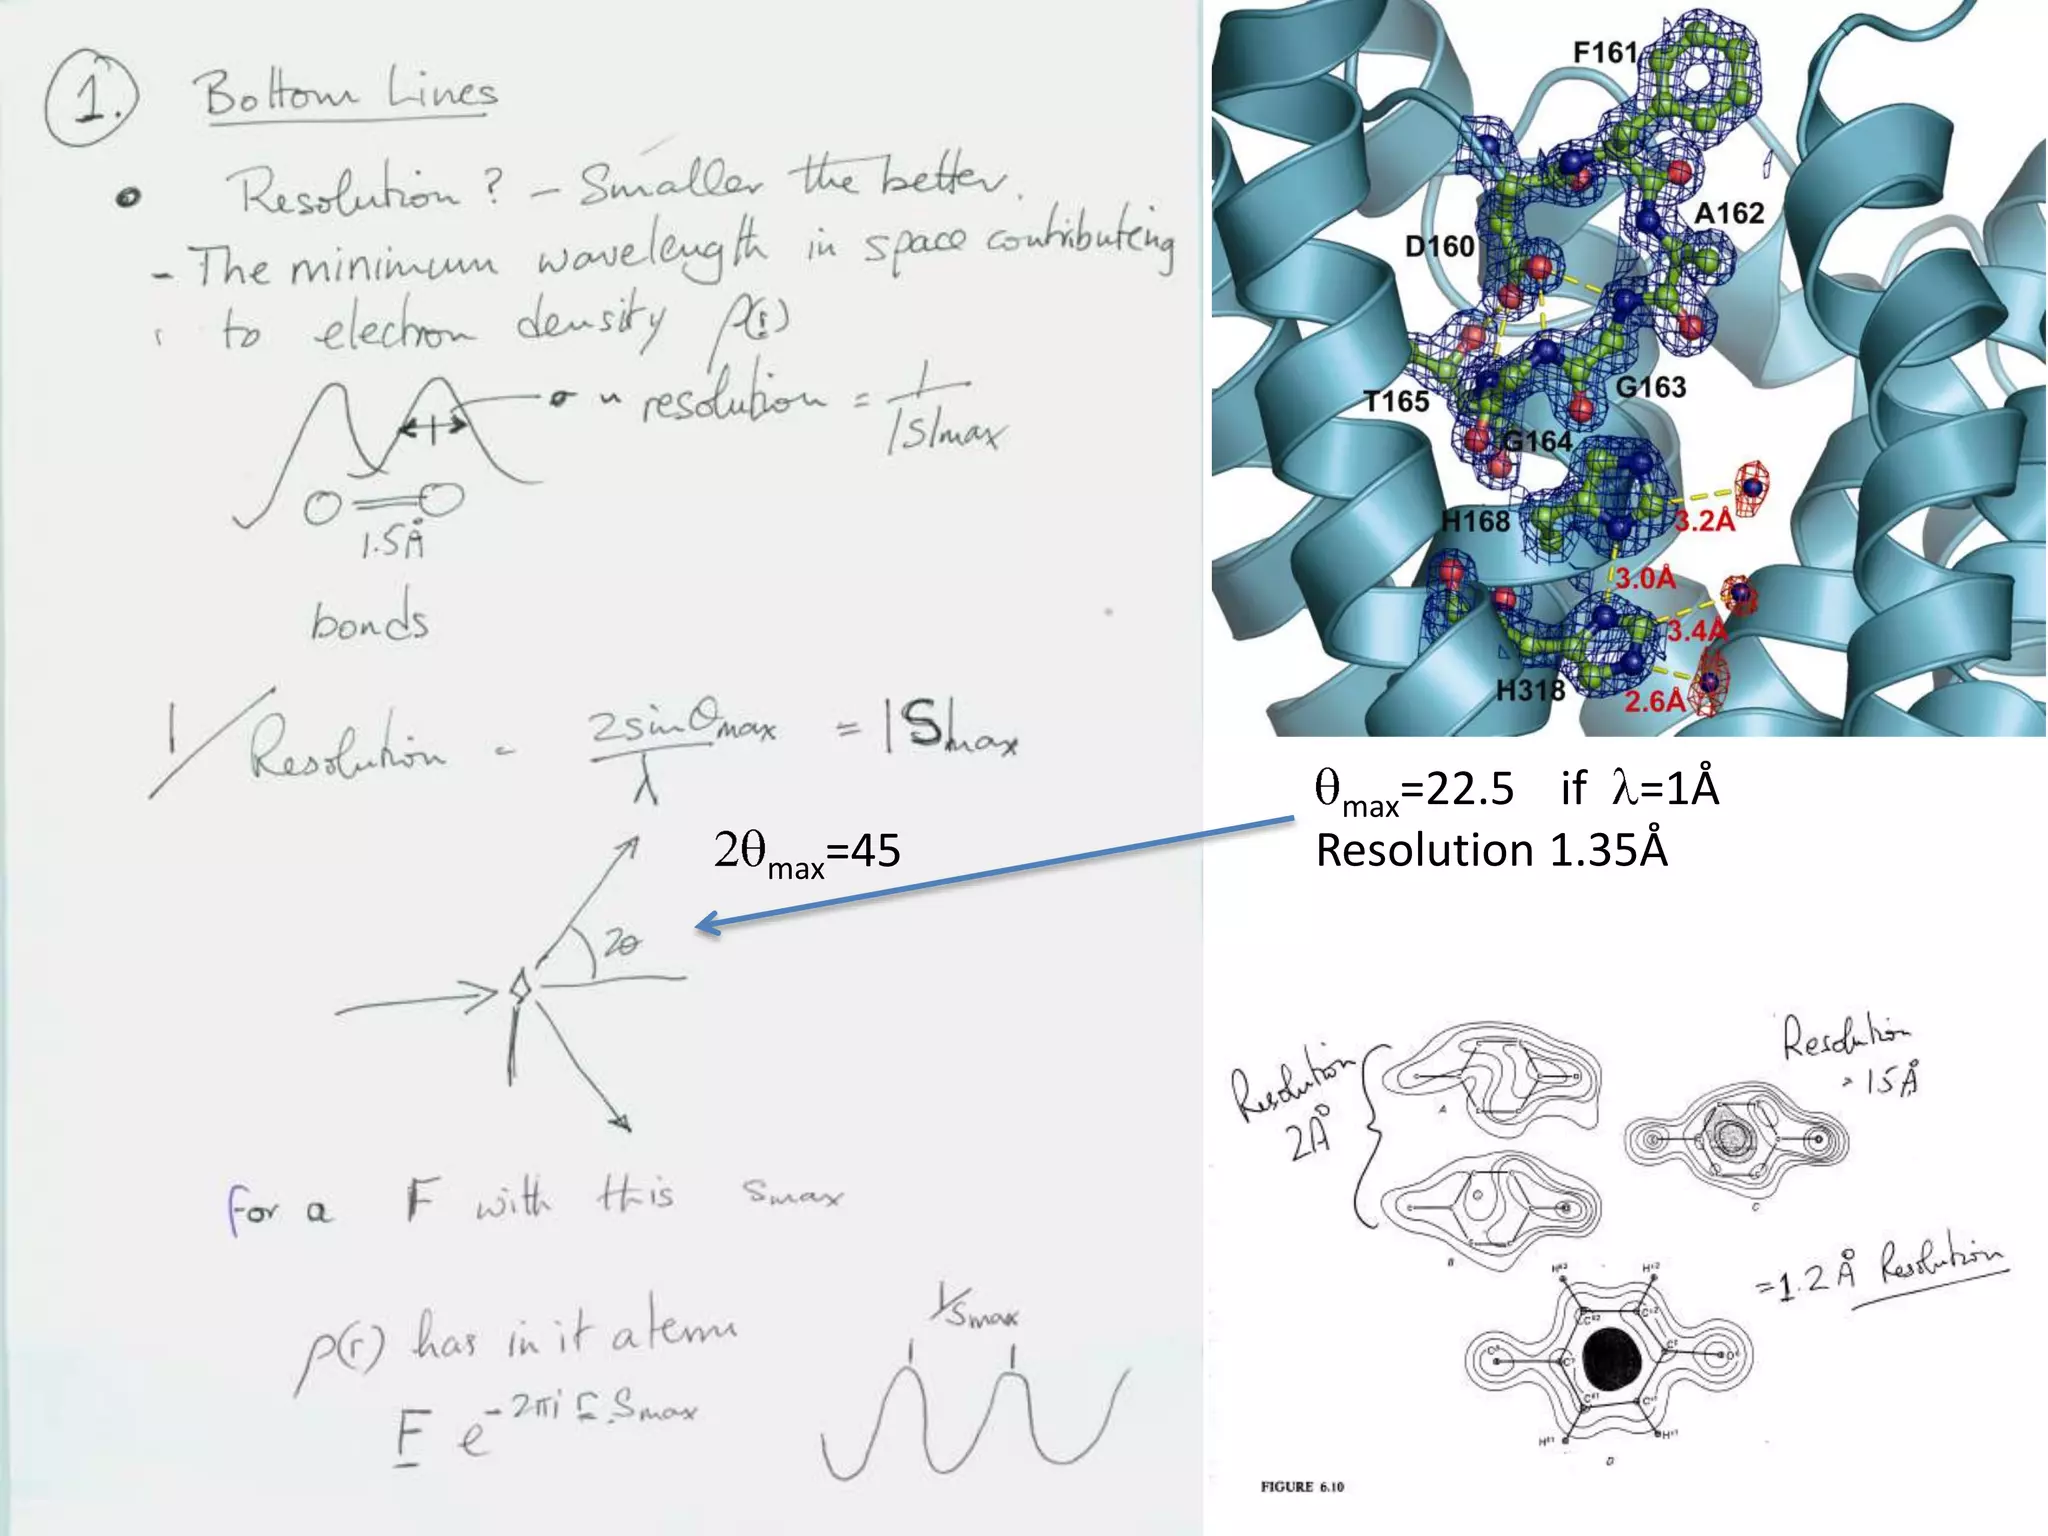 1. Bottom Lines
• Resolution? - Smaller the better.
- The minimum wavelength in space contributing
to electron density ρ(r)
resolution = 1/|S|max
1.5Å
bonds
1/Resolution = 2sinθmax/λ = |S|max
2θmax=45
2θ
For a F with this Smax
ρ(r) has in it a term
F e^-2πi r.Smax
1/Smax
F161
A162
D160
G163
T165
G164
H168
3.2Å
3.0Å
3.4Å
H318
2.6Å
θmax=22.5 if λ=1Å
Resolution 1.35Å
Resolution
2Å
A
B
Resolution
= 1.5Å
C
=1.2Å Resolution
D
FIGURE 6.10